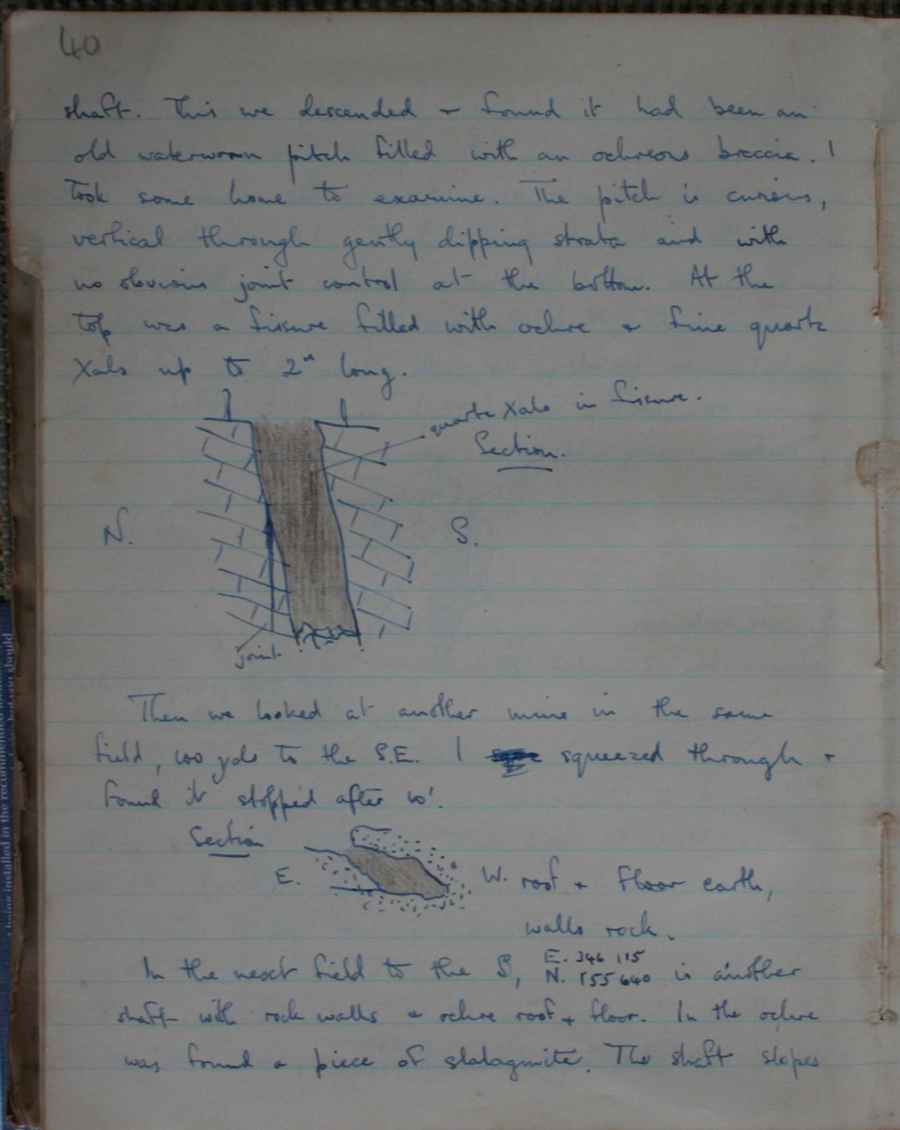 40
shaft. This we descended + found it had been an
old waterworn pitch filled with an ochreous breccia. I
took some home to examine. The pitch is curious,
vertical through gently dipping strata and with
no obvious joint control at the bottom. At the
top was a fissure filled with ochre + fine quartz
Xals up to 2" long.
quartz Xals in fissure.
Section.
N. S.
joint
Then we looked at another mine in the same
field, 100 yds to the S.E. I squeezed through +
found it stopped after 10'.
Section
E. W. roof + floor earth,
walls rock.
In the next field to the S, E. 346 115
N. 155 640 is another
shaft with rock walls + ochre roof + floor. In the ochre
was found a piece of stalagmite. The shaft slopes